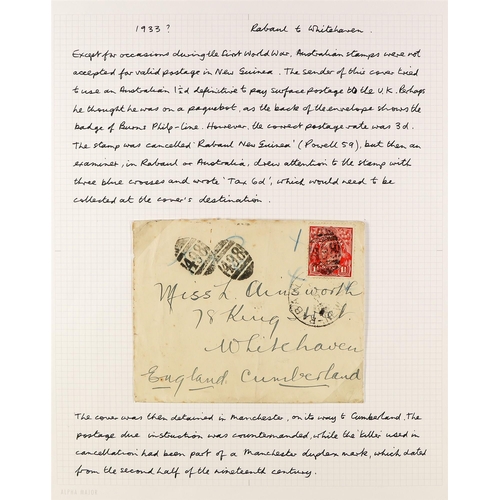 1933? Rabaul to Whitehaven.
Except for occasions during the First World War, Australian stamps were not
accepted for valid postage in New Guinea. The sender of this cover tried
to use an Australian 1½d definitive to pay surface postage to the U.K. Perhaps
he thought he was on a paquebot, as the back of the envelope shows the
badge of Burns Philp-line. However, the correct postage rate was 3d.
The stamp was cancelled 'Rabaul New Guinea' (Powell 59), but then an
examiner, in Rabaul or Australia, drew attention to the stamp with
three blue crosses and wrote 'Tax 6d', which would need to be
collected at the cover's destination.
498 498
Miss L. Ainsworth
78 King St.
Whitehaven
England. Cumberland
The cover was then detained in Manchester, on its way to Cumberland. The
postage due instruction was countermanded, while the 'killer' used in
cancellation had been part of a Manchester duplex mark, which dated
from the second half of the nineteenth century.